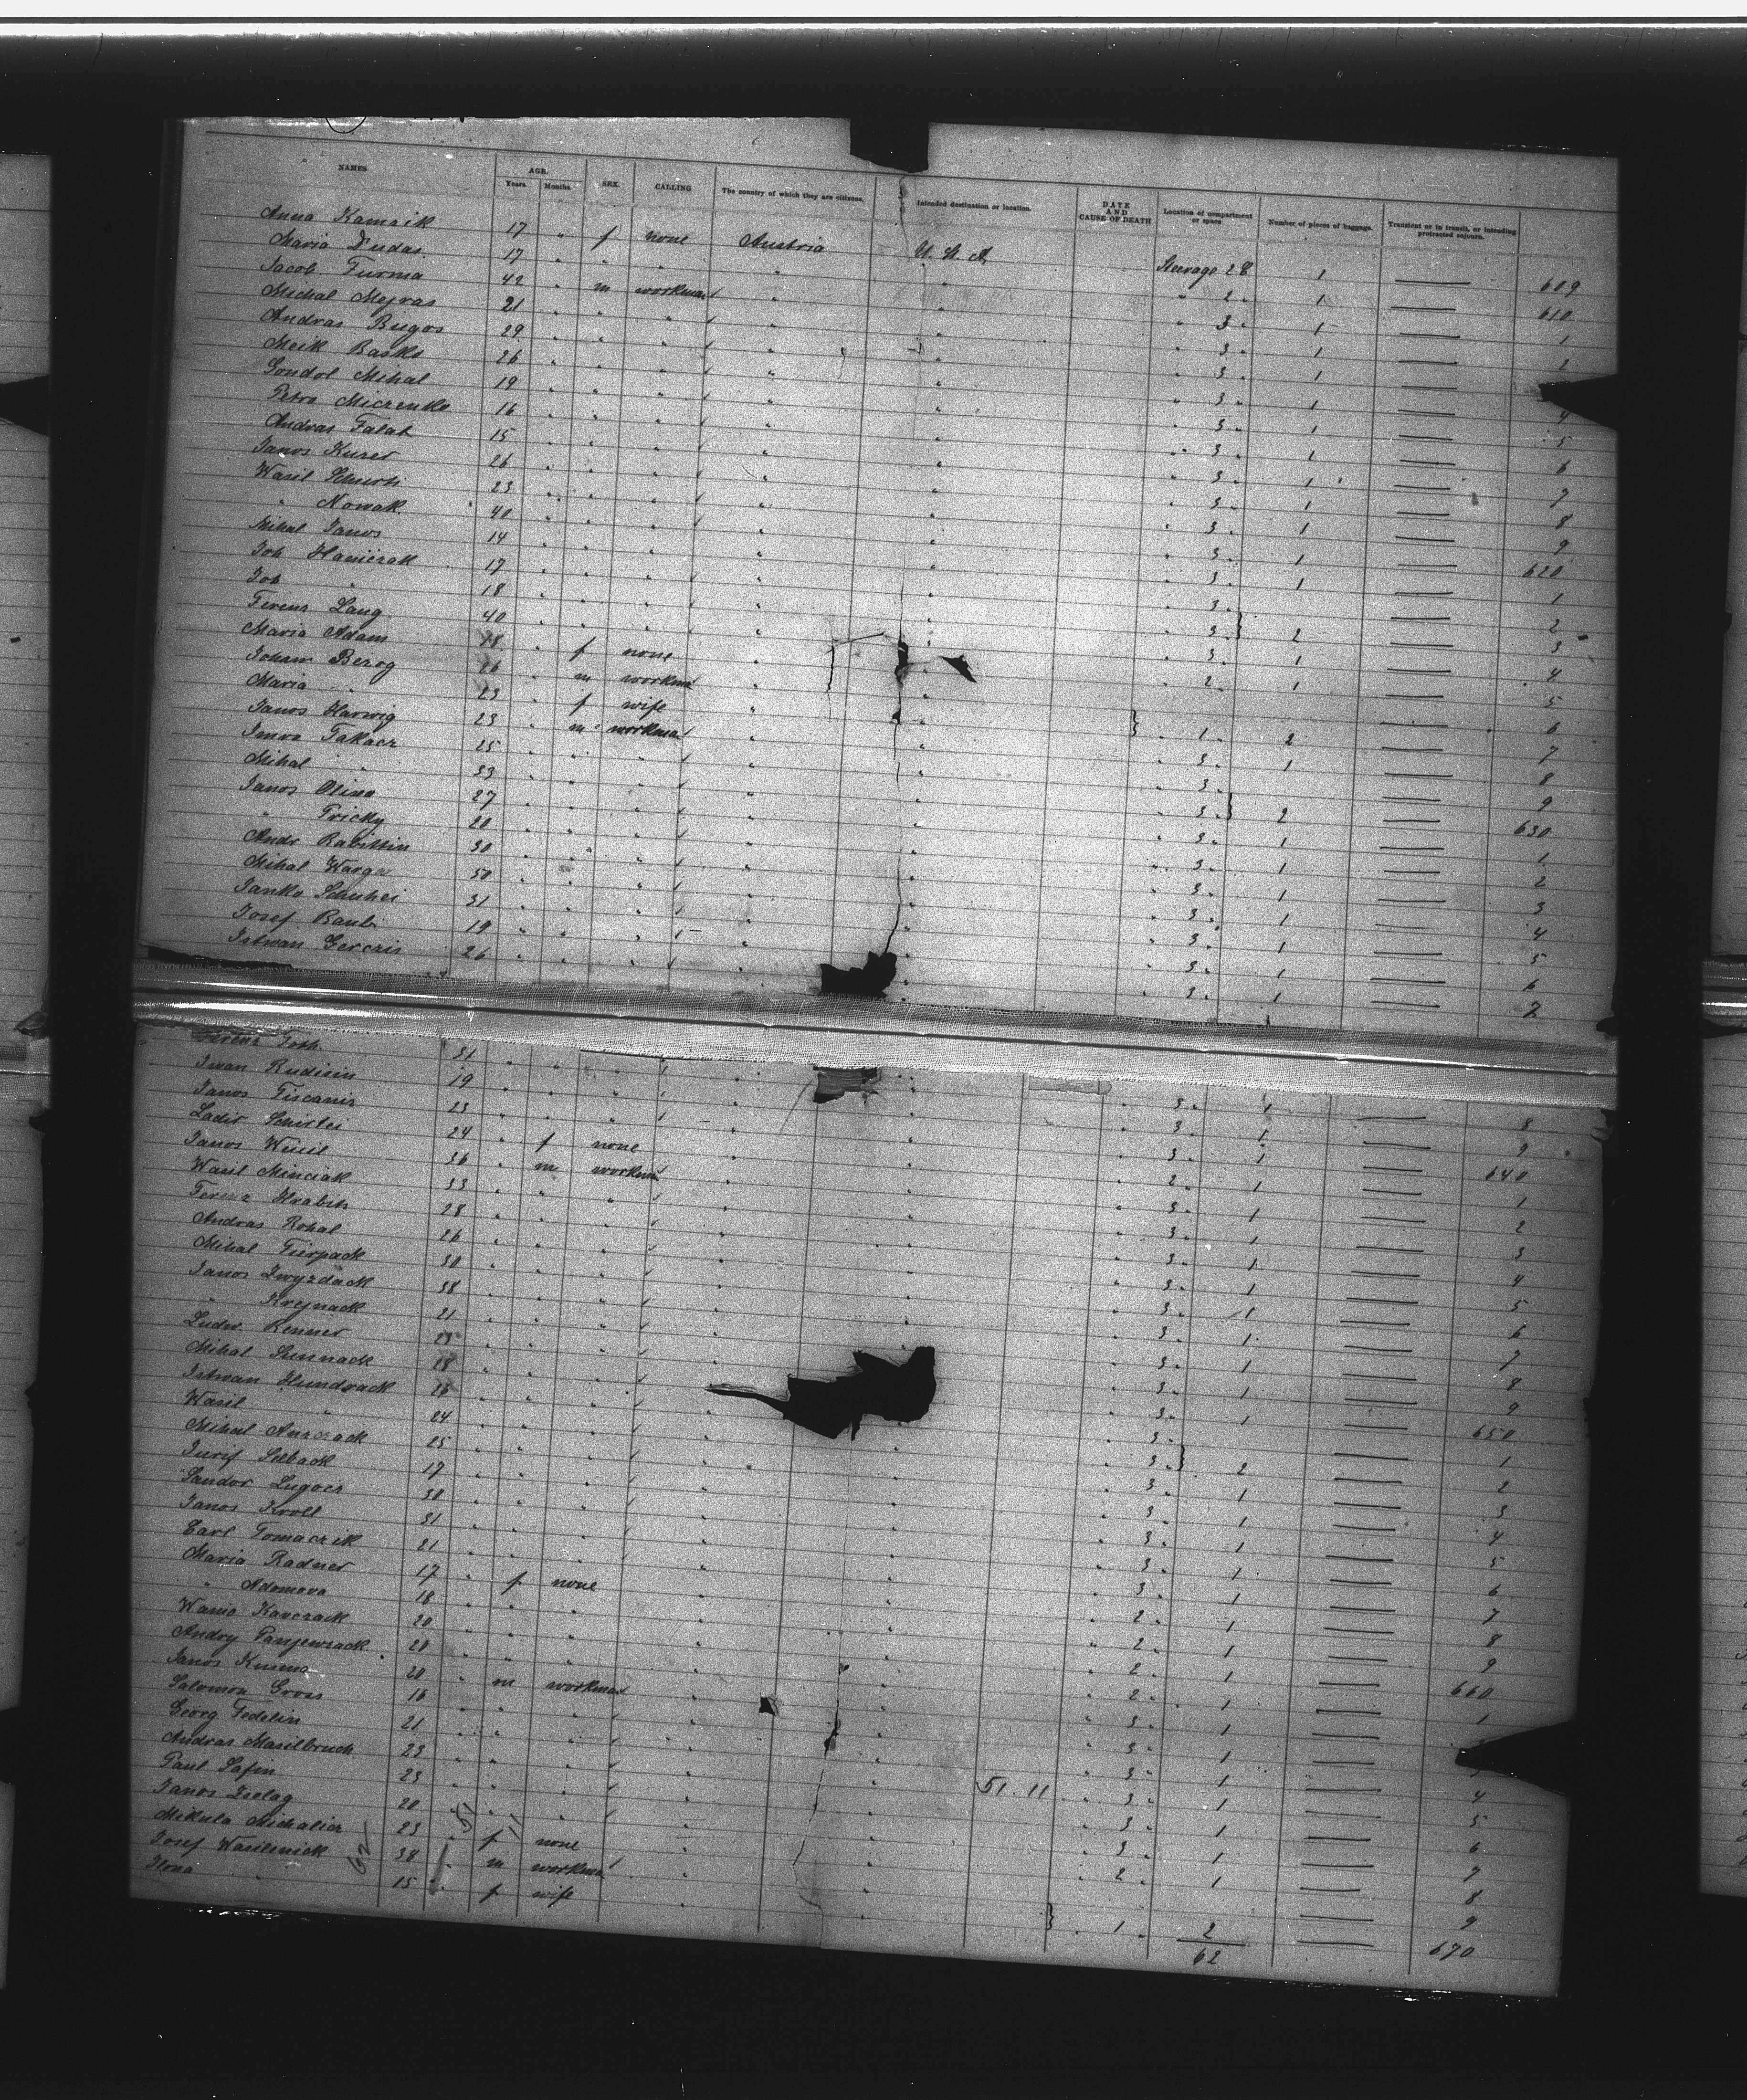 NAMES AGE. Years. Months. SEX. CALLING The country of which they are citizens. Intended destination or location. DATE AND CAUSE OF DEATH Location of compartment or space Number of pieces of baggage. Transient or in transit, or intending protracted sojourn.
Anna Kamaik 17 " f none Austria U. S. A. Steerage 2 " 1 — 609
Maria Dudas 17 " " " " " " 2 " 1 — 610
Jacob Furma 42 " m workman " " " 3 " 1 — 1
Michal Mejras 21 " " " " " " 3 " 1 — 2
Andras Bugos 29 " " " " " " 3 " 1 —
Meik Basko 26 " " " " " " 3 " 1 — 4
Gondol Mihal 19 " " " " " " 3 " 1 — 5
Petro Miczenko 16 " " " " " " 3 " 1 — 6
Andras Falat 15 " " " " " " 3 " 1 — 7
Janos Kuzer 26 " " " " " " 3 " 1 — 8
Wasil 23 " " " " " " 3 " 1 — 9
" Nowak 40 " " " " " " 3 " 1 — 620
Mihal Janos 14 " " " " " " 3 " 1 — 1
Joh Haniczak 17 " " " " " " 3 " — 2
Joh " 18 " " " " " " 3 " } 2 — 3
Ferenz Lang 40 " " " " " " 3 " 1 — 4
Maria Adam 18 " f none " " " 2 " 1 5
Johann Bezog 26 " m workman " " — 6
Maria " 23 " f wife " " } " 1 " 2 — 7
Janos Harwig 23 " m workman " " " 3 " 1 — 8
Janos Takacz 25 " " " " " " 3 " — 9
Mihal " 33 " " " " " " 3 " } 2 — 630
Janos Olina 27 " " " " " " 3 " 1 — 1
" Tricky 20 " " " " " " 3 " 1 — 2
Andr Rabittin 30 " " " " " " 3 " 1 — 3
Mihal Warga 50 " " " " " " 3 " 1 — 4
Janko Schuhei 31 " " " " " " 3 " 1 — 5
Josef Baub 19 " " " " " " 3 " 1 — 6
Istwan Gerczis 26 " " " " " " 3 " 1 — 7
Ferenz Toth 31 " " " " " " 3 " 1 — 8
Iwan Rudisin 19 " " " " " " 3 " 1 — 9
Janos Tiscanis 23 " " " " " " 3 " 1 — 640
Ladis 24 " f none " " " 2 " 1 — 1
Janos 36 " m workman " " " 3 " 1 — 2
Wasil Minciak 33 " " " " " " 3 " 1 — 3
Ferenz Hrabits 28 " " " " " " 3 " 1 — 4
Andras Kohal 26 " " " " " " 3 " 1 — 5
Mihal Tierpack 30 " " " " " " 3 " 1 — 6
Janos Zwyzdack 38 " " " " " " 3 " 1 — 7
" Krejnack 21 " " " " " " 3 " 1 — 8
Ludw. Renner 23 " " " " " " 3 " 1 — 9
Mihal 28 " " " " " " 3 " 1 — 650
Istwan Hundrack 26 " " " " " " 3 " — 1
Wasil " 24 " " " " " " 3 " } 2 — 2
Mihal 25 " " " " " " 3 " 1 — 3
Jurif Selback 17 " " " " " " 3 " 1 — 4
Sandor Lugocz 30 " " " " " " 3 " 1 — 5
Janos Kroll 31 " " " " " " 3 " 1 — 6
Carl Tomaczik 21 " " " " " " 3 " 1 — 7
Maria Radner 17 " f none " " " 2 " 1 — 8
" Adamova 18 " " " " " " 2 " 1 — 9
Wania Kavczack 20 " " " " " " 2 " 1 — 660
Andry 20 " " " " " " 2 " 1 — 1
Janos Kusma 20 " m workman " " " 3 " 1 —
Salomon Gross 16 " " " " " " 3 " 1 — 3
Georg Fedelin 21 " " " " " " 3 " 1 — 4
Andras Masilbruch 23 " " " " " " 3 " 1 — 5
Paul Safin 23 " " " " " 51. 11 " 3 " 1 — 6
Janos Zselag 20 " " " " " " 3 " 1 — 7
Mikula Michalicz 23 " f none " " " 2 " 1 — 8
Josef Wasilenick 38 " m workman " " — 9
Ilona " 15 " f wife " " } " 1 " 2 — 670
62